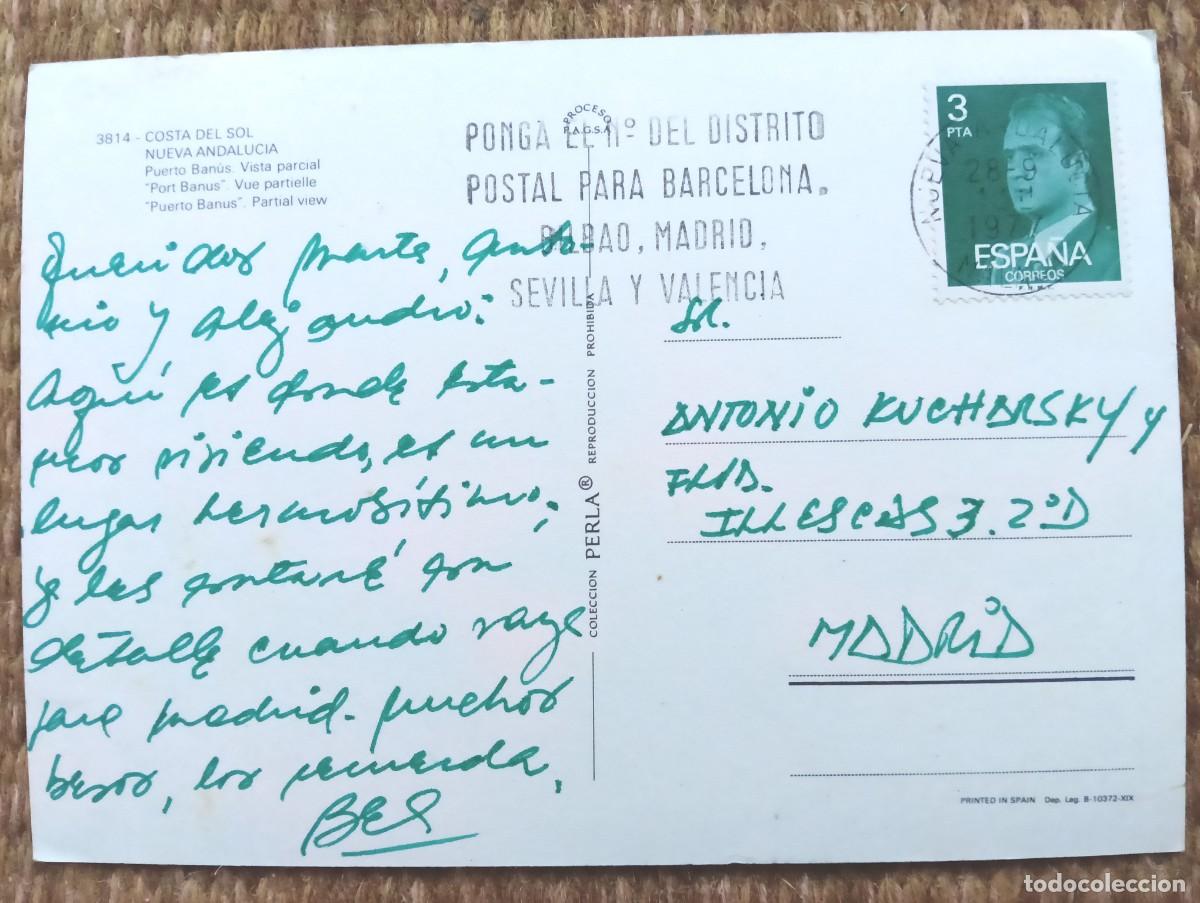 3814 - COSTA DEL SOL
NUEVA ANDALUCIA
Puerto Banús. Vista parcial
"Port Banus". Vue partielle
"Puerto Banus". Partial view
Queridos Marta, Anto-
nio y Alejandro:
Aquí es donde esta-
mos viviendo, es un
lugar hermosísimo,
ya les contaré con
detalle cuando vaya
para Madrid. Muchos
besos, los recuerda,
PROCESO
F.A.G.S.A.
PONGA EL Nº DEL DISTRITO
POSTAL PARA BARCELONA,
BILBAO, MADRID,
SEVILLA Y VALENCIA
COLECCION PERLA® REPRODUCCION PROHIBIDA
3
PTA
ESPAÑA
CORREOS
ANDALUCIA
28 9
197
Sr.
ANTONIO KUCHARSKY y
FLIA.
ILLESCAS 3. 2ºD
MADRID
PRINTED IN SPAIN Dep. Leg. B-10372-XIX
todocoleccion